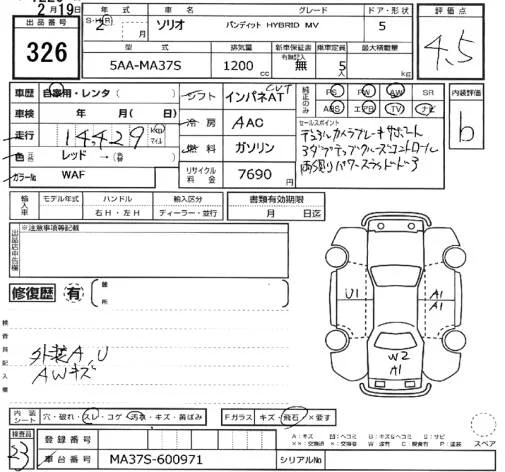 2月19日
出品番号 326
年式 S・H・R 2年 月
車名 ソリオ
グレード バンディット HYBRID MV
ドア・形状 5
評価点 4.5
型式 5AA-MA37S
排気量 1200 cc
新車保証書 有無記入 無
乗車定員 5人
最大積載量 kg
車歴 自家用・レンタ( )
車検 年 月( 日)
走行 14,429 km マイル
色 元色 レッド →( 替色 )
カラーNo WAF
シフト インパネAT CVT
冷房 AAC
燃料 ガソリン
リサイクル料金 7690
純正のみ PS PW AW SR
ABS エアB TV ナビ
内装評価 b
セールスポイント
デュアルカメラブレーキサポート
アダプティブクルーズコントロール
両側パワースライドドア
輸入車 モデル年式 ハンドル 右H・左H 輸入区分 ディーラー・並行
書類有効期限 月 日迄
出品店申告欄 ※注意事項等記載
修復歴 有 箇所
検査員記入欄
外装A、U
AWキズ
U1
A1
A1
W2
A1
内装シート 穴・破れ・スレ・コゲ・汚れ・キズ・黄ばみ
Fガラス キズ・飛石・×要す
スペア
検査員 23
登録番号
車台番号 MA37S-600971
シリアルNo